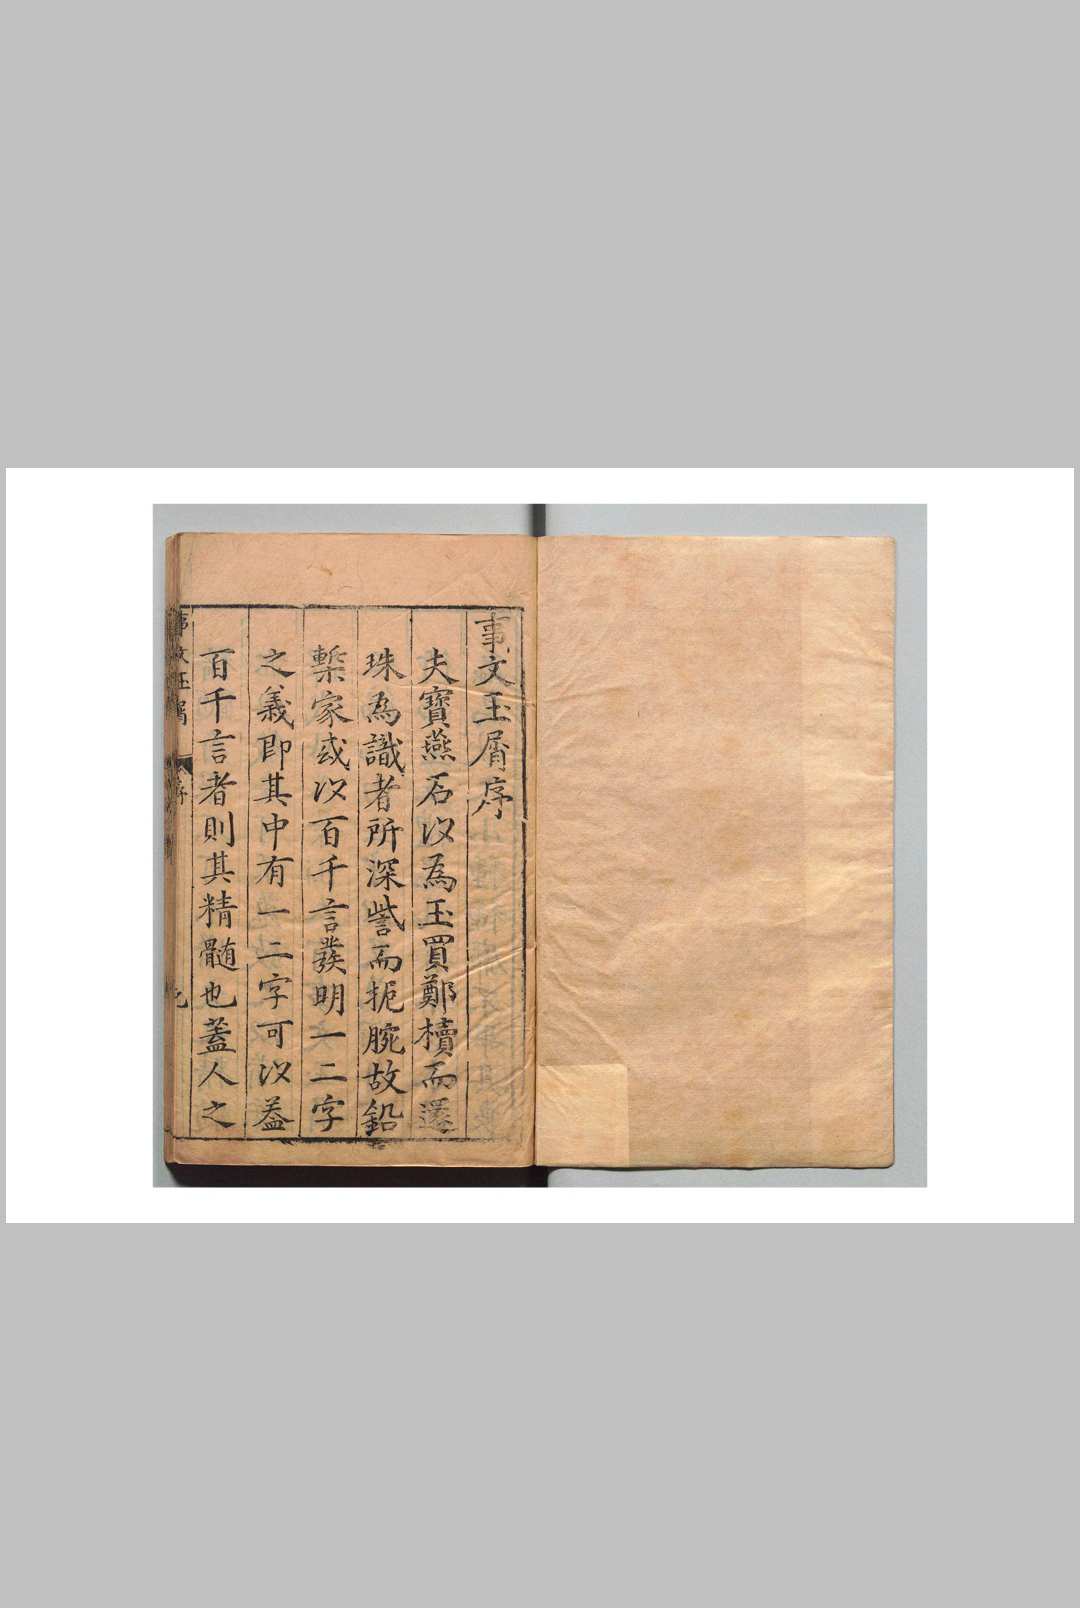 事文玉屑序
夫寶燕石以為玉買鄭櫝而還
珠為識者所深訾而扼腕故鉛
槧家或以百千言發明一二字
之義即其中有一二字可以葢
百千言者則其精髓也蓋人之
事文玉屑 序